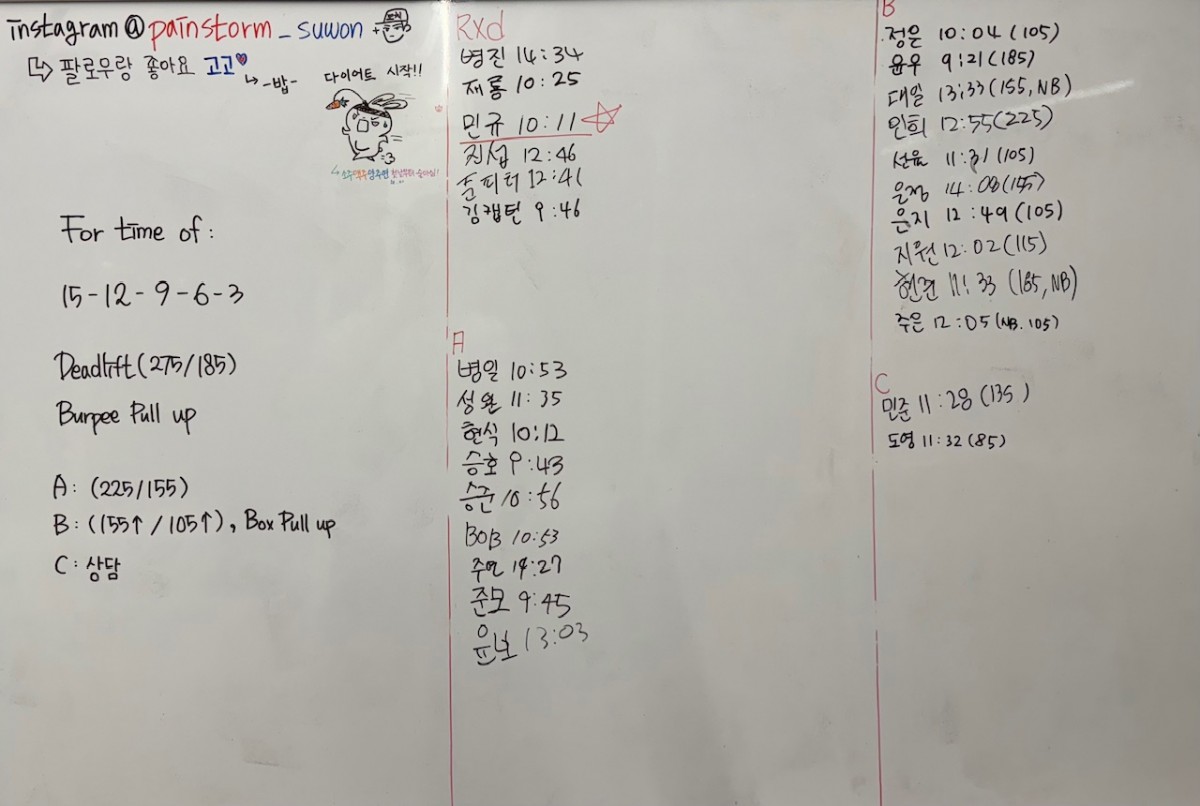 instagram @ painstorm_suwon +
팔로우랑 좋아요 고고
-밥-
다이어트 시작!!
For time of :
15 - 12 - 9 - 6 - 3
Deadlift (275/185)
Burpee Pull up
A : (225/155)
B : (155↑ / 105↑), Box Pull up
C : 상담
Rxd
병진 14:34
재룡 10:25
민규 10:11
진섭 12:46
준피터 12:41
김캡틴 9:46
A
병일 10:53
성완 11:35
현식 10:12
승호 9:43
승준 10:56
BOB 10:53
주연 14:27
준모 9:45
윤보 13:03
B
정은 10:04 (105)
윤우 9:21 (185)
대일 13:33 (155, NB)
인희 12:55 (225)
선율 11:31 (105)
은정 14:08
은지 12:49 (105)
지원 12:02 (115)
현준 11:33 (185, NB)
주은 12:05 (NB. 105)
C
민준 11:28 (135)
도영 11:32 (85)